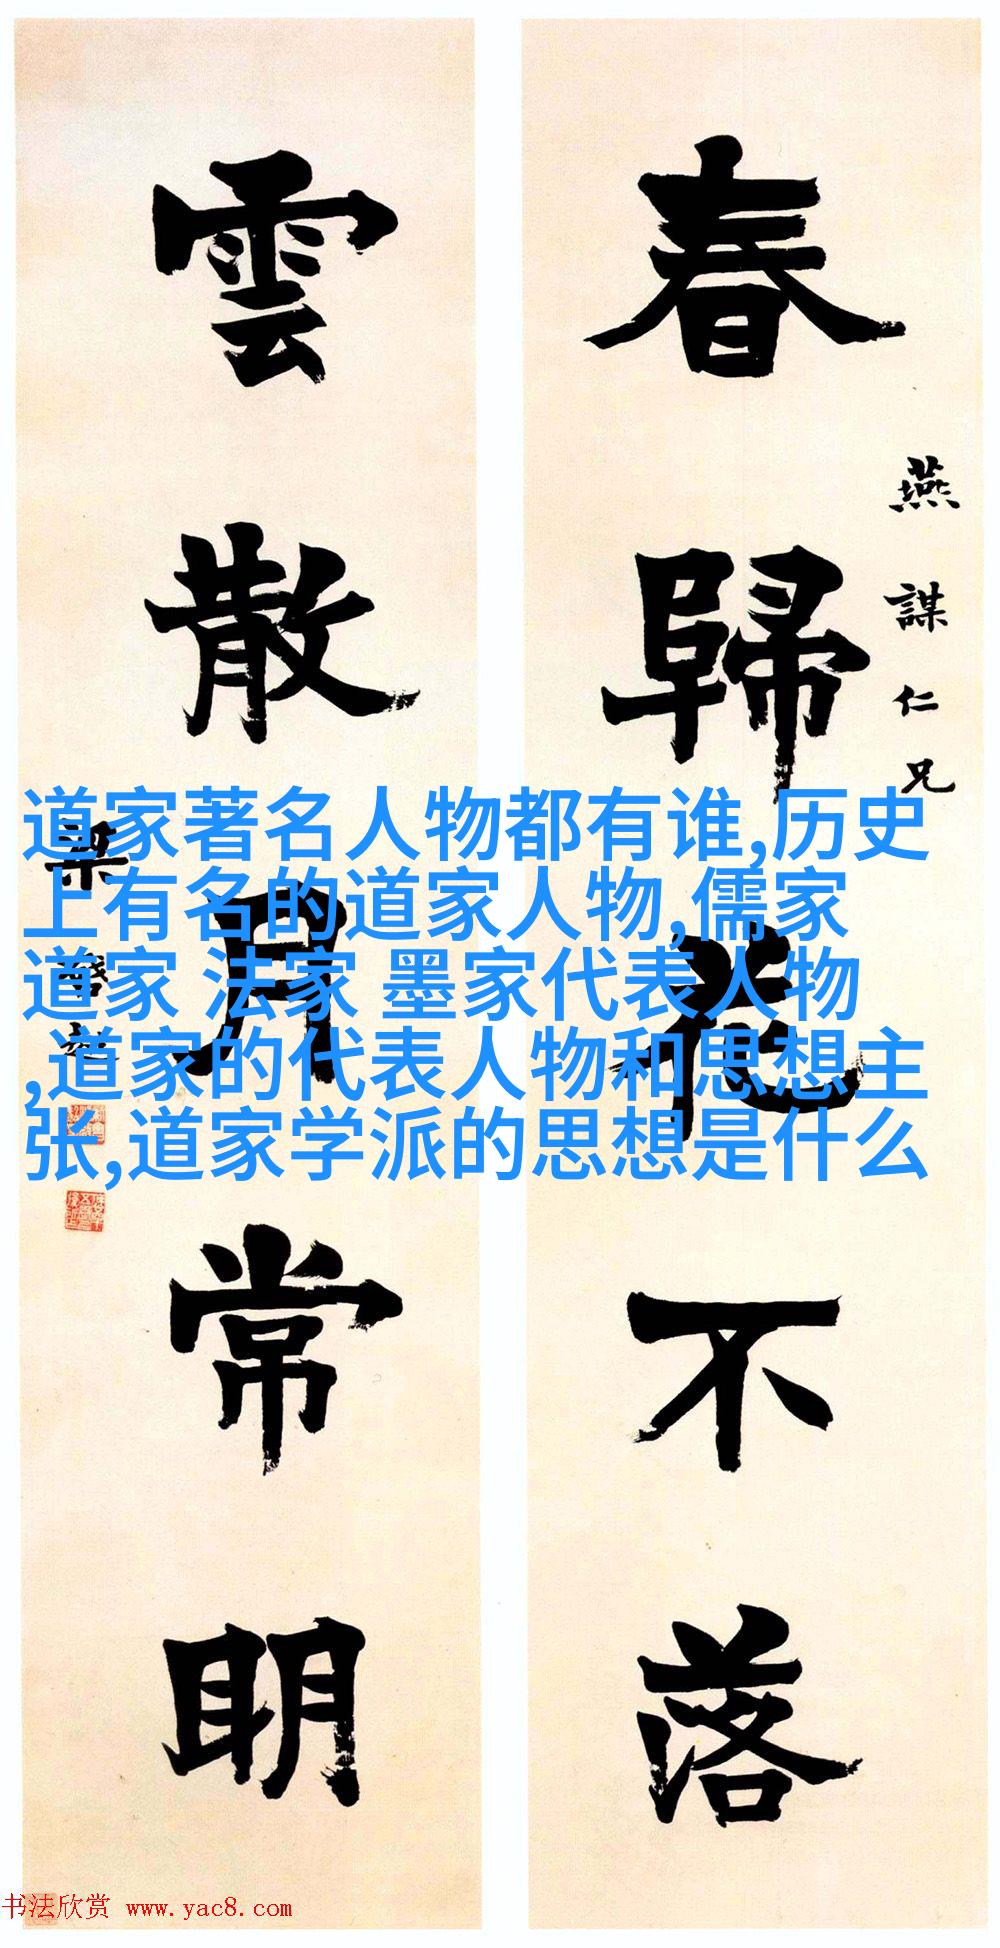 春歸花不落
燕謀仁兄
雲散月常明
梁啓超
道家著名人物都有谁,历史
上有名的道家人物,儒家
道家 法家 墨家代表人物
,道家的代表人物和思想主
张,道家学派的思想是什么
书法欣赏 www.yac8.com